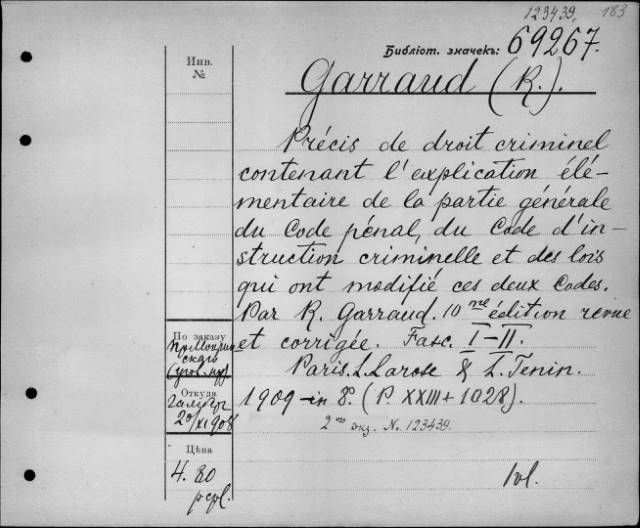 123439. 183
Библіот. значекъ: 69267.
Инв.
№
Garraud (R.).
Précis de droit criminel
contenant l'explication élé-
mentaire de la partie générale
du Code pénal, du Code d'in-
struction criminelle et des lois
qui ont modifié ces deux Codes.
Par R. Garraud. 10me édition revue
et corrigée. Fasc. I-II.
Paris. L. Larose & L. Tenin.
1909 in 8°. (P. XXIII + 1028).
2ой экз. N. 123439.
По заказу
Откуда
20/XI 1908
Цѣна
4. 80
1 vol.